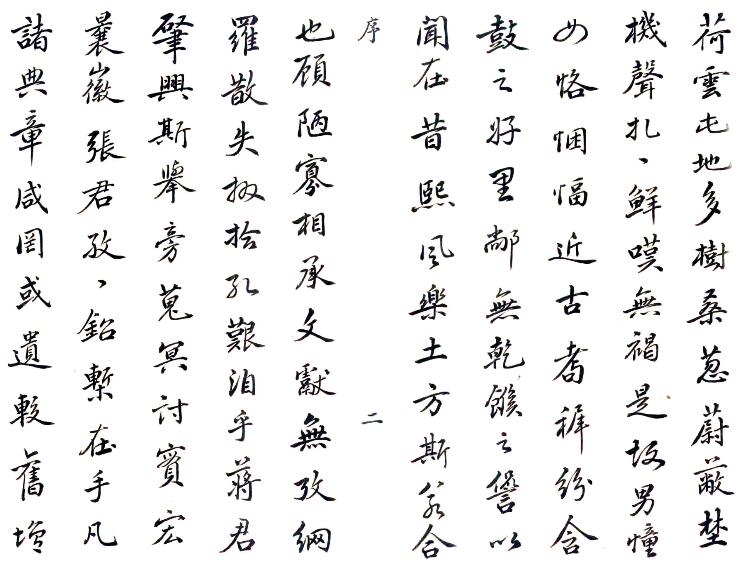 荷雲屯地多樹桑葱蔚蔽埜
機聲扎丶鮮嘆無褐是故男憧
女恪悃愊近古耆稺紛含
鼓之好里鄰無乾餱之諐以
聞在昔熙風樂土方斯合
序 二
也顧陋寡相承文獻無攷綱
羅散失掇拾孔艱洎乎蔣君
肇興斯舉旁蒐冥討賓宏
曩徽張君孜丶鉛槧在手凡
諸典章咸罔或遺較舊增